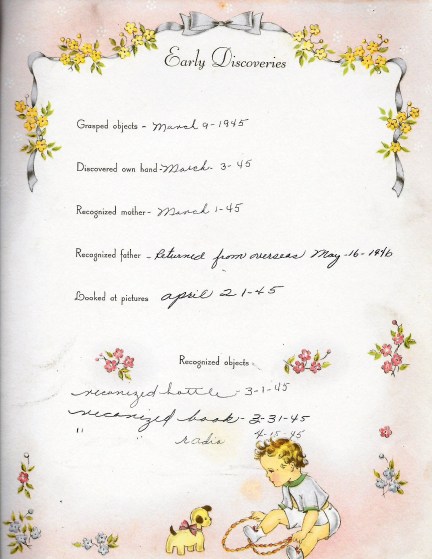 Early Discoveries
Grasped objects - March 9-1945
Discovered own hand - March 3-45
Recognized mother - March 1-45
Recognized father - Returned from overseas May-16-1946
Looked at pictures april 21-45
Recognized objects -
reconized bottle - 3-1-45
reconized book - 3-31-45
" " radio 4-15-45